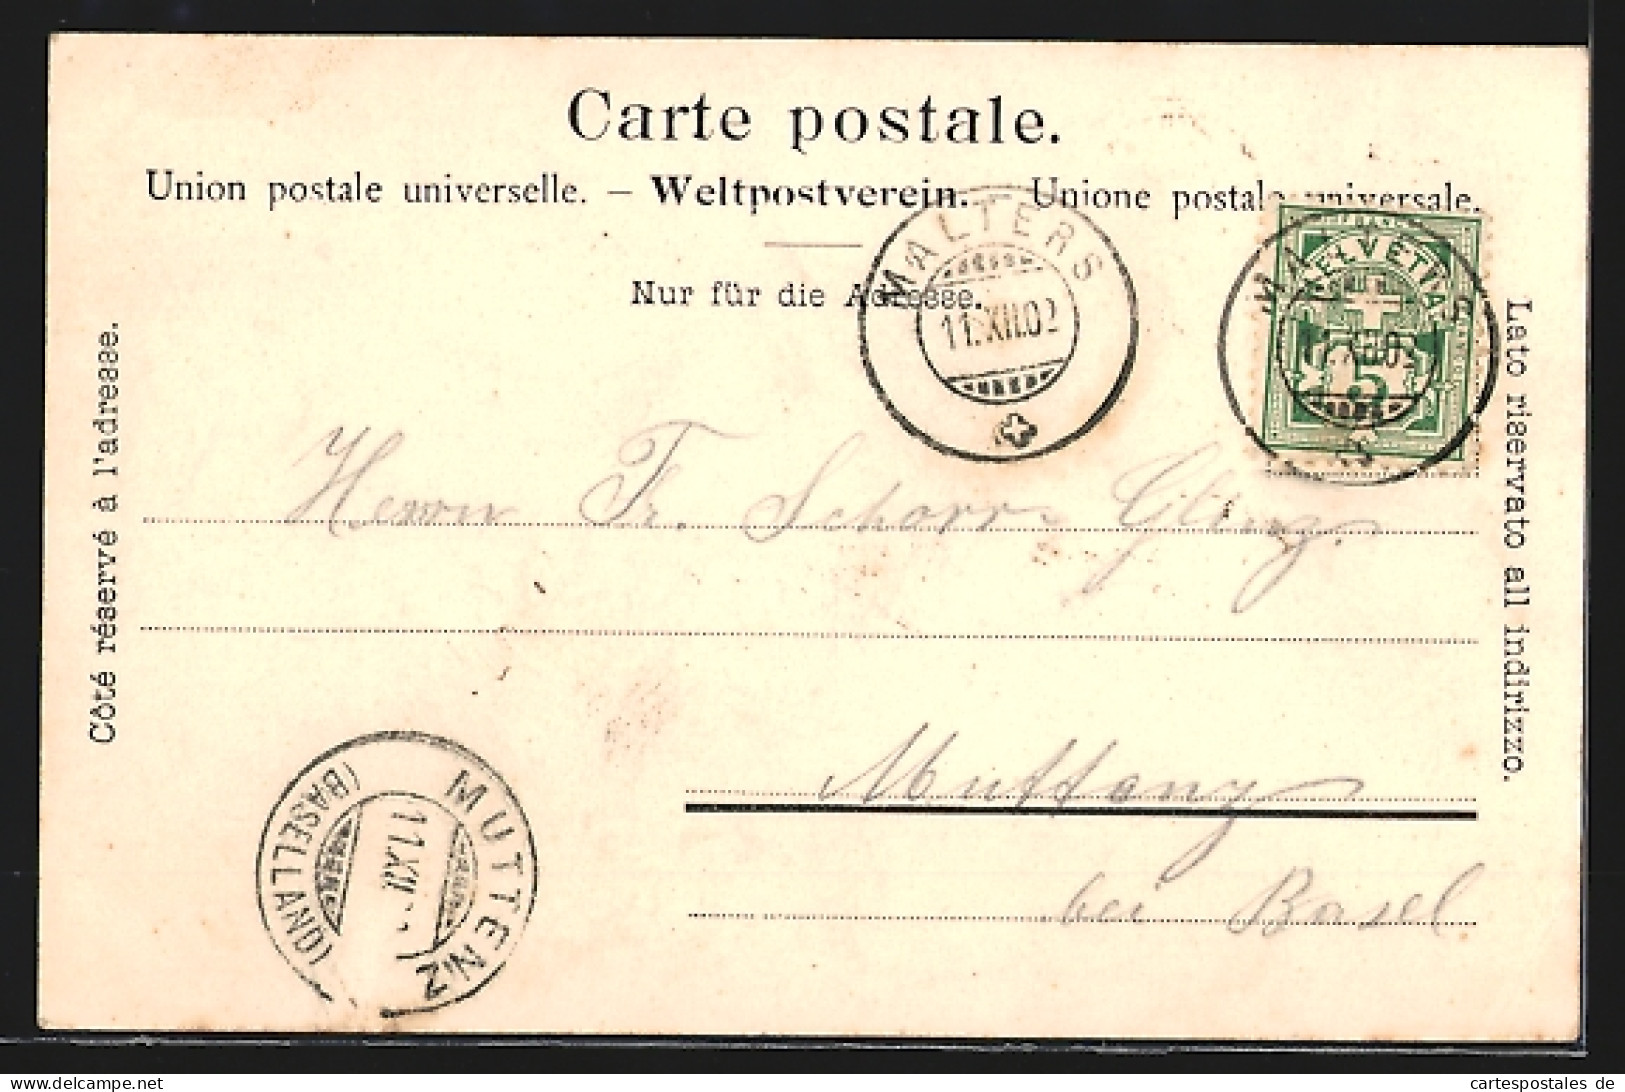 Carte postale.
Union postale universelle. — Weltpostverein. — Unione postale universale.
Nur für die Adresse.
MALTERS
11.XII.02
HELVETIA
5
Côté réservé à l'adresse.
Lato riservato all indirizzo.
Herrn Fr.
Muttenz
bei Basel
MUTTENZ
(BASELLAND)
11.XII
delcampe.net
cartespostales de